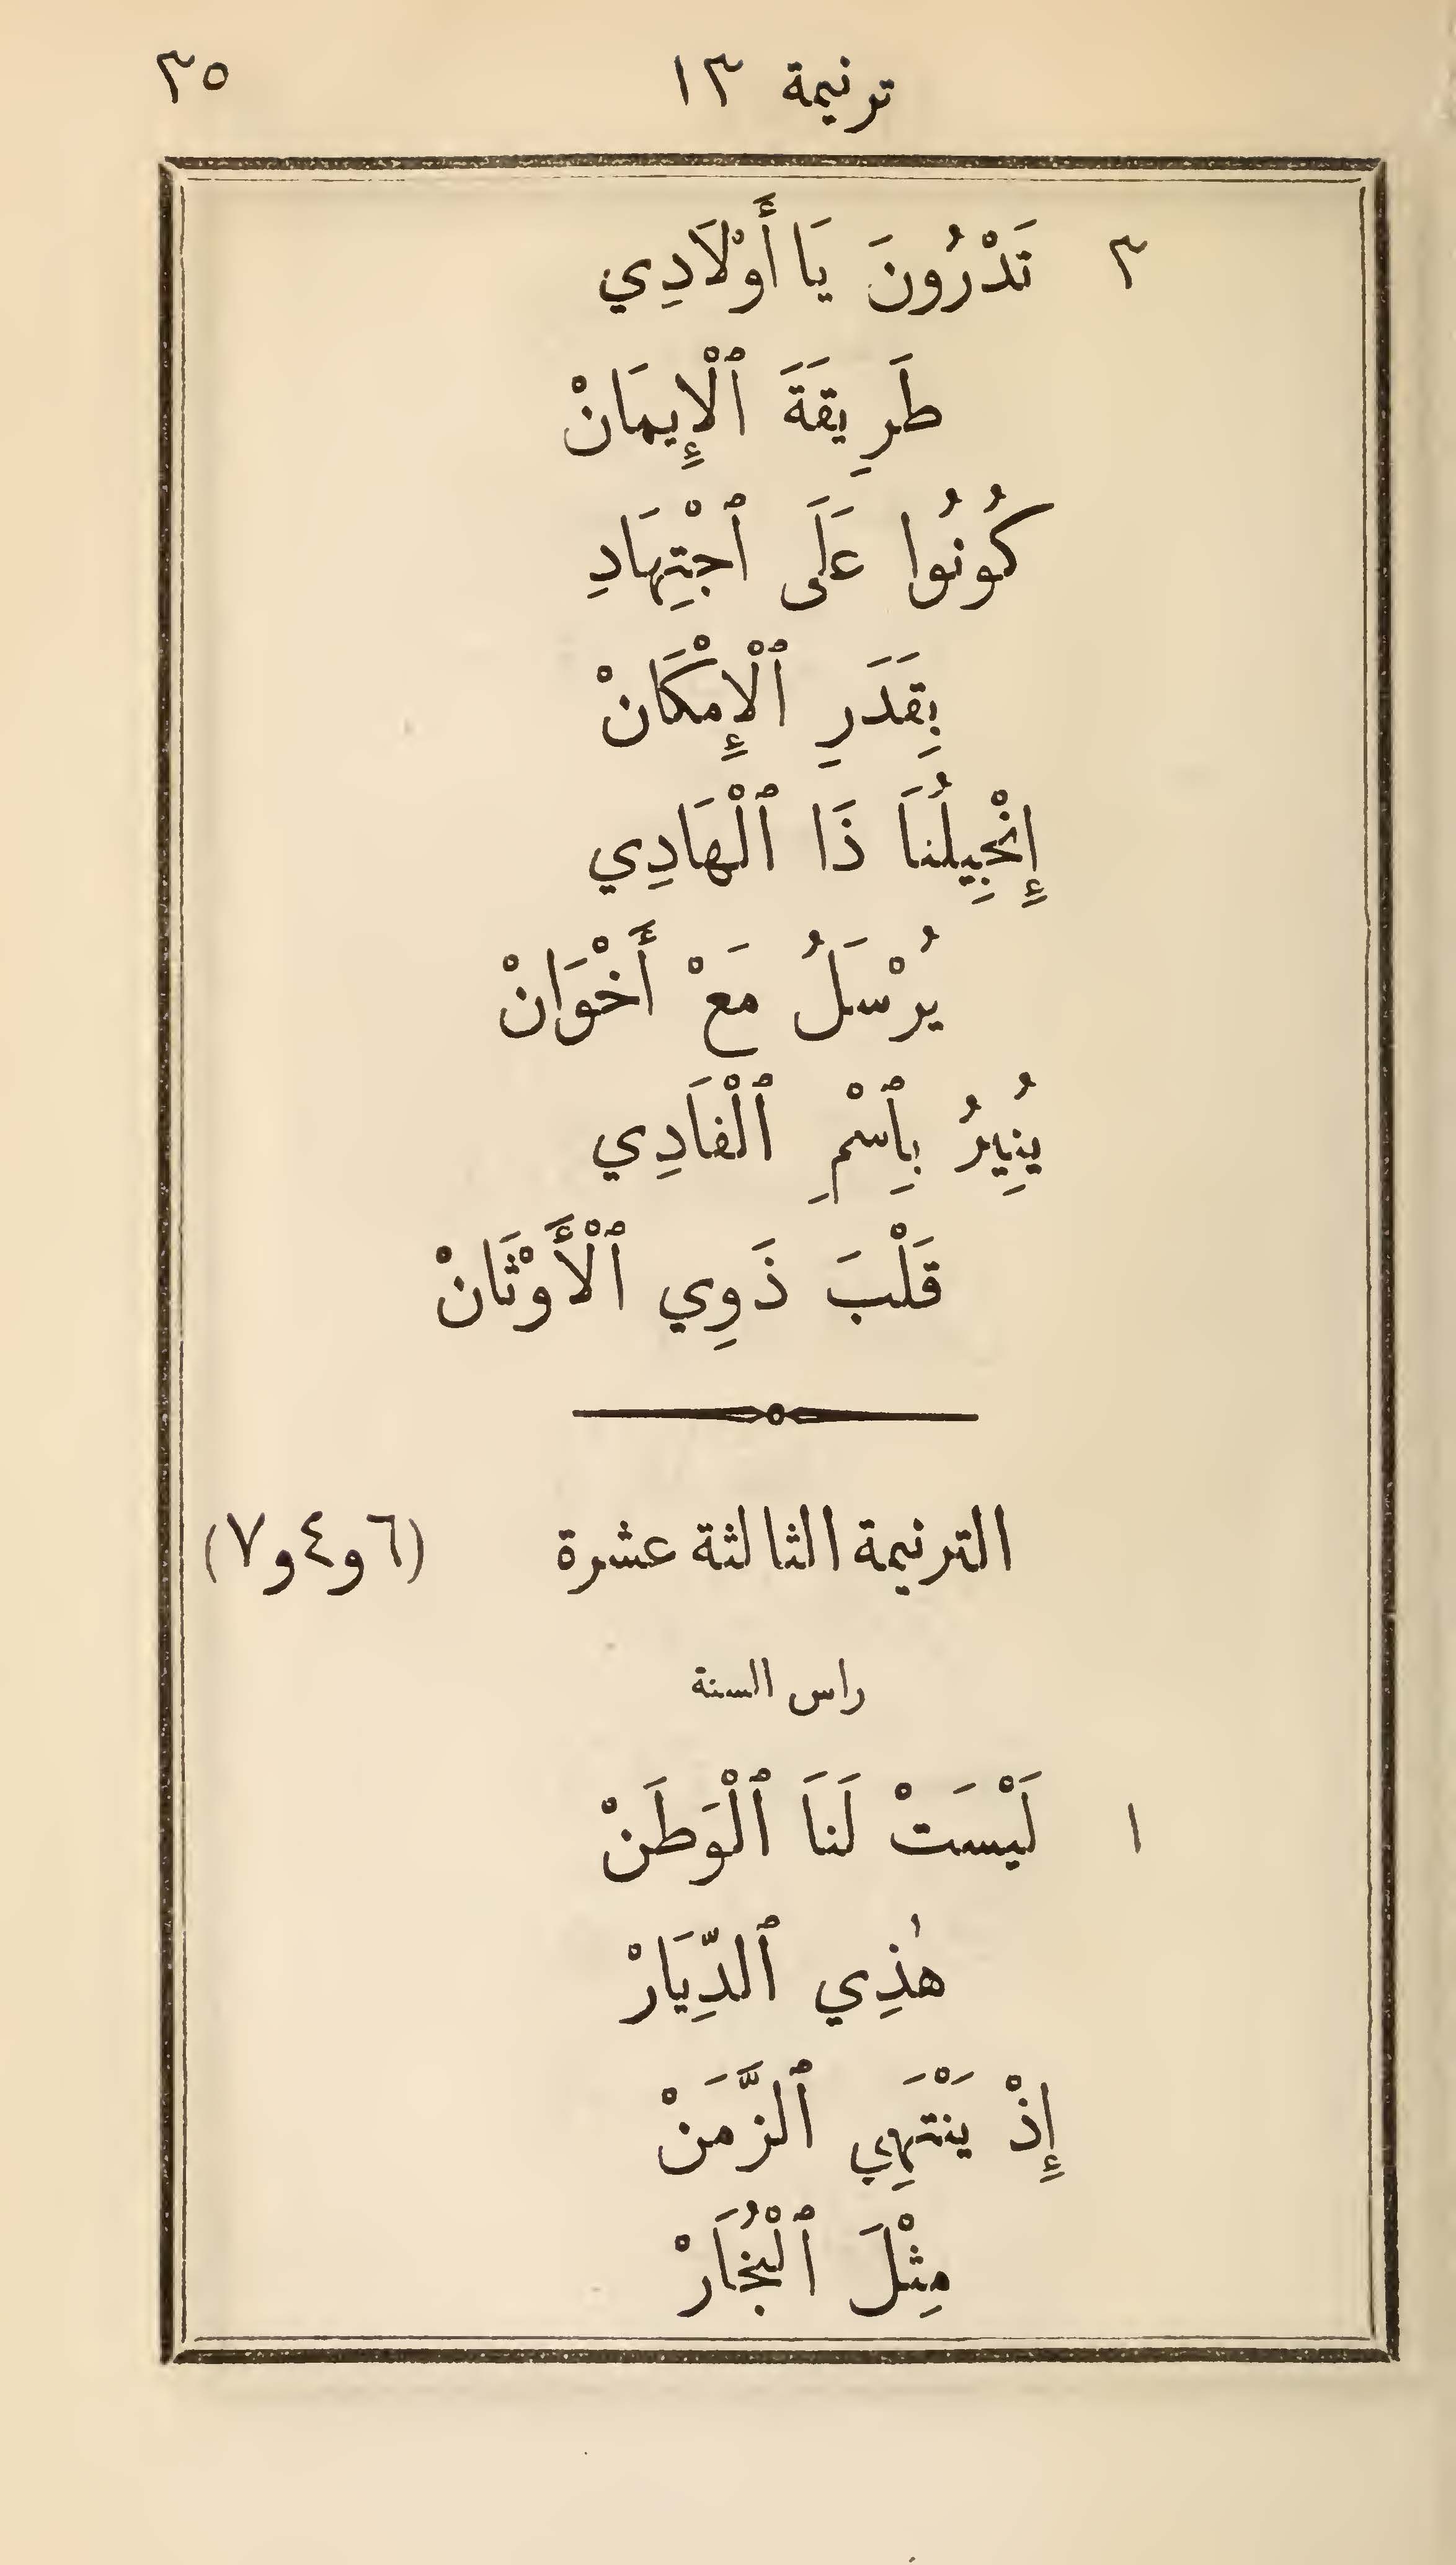 ترنيمة ١٣ ٣٥
٣ تَدْرُونَ يَا أَوْلَادِي
طَرِيقَةَ ٱلْإِيمَانْ
كُونُوا عَلَى ٱجْتِهَادِ
بِقَدَرِ ٱلْإِمْكَانْ
إِنْجِيلُنَا ذَا ٱلْهَادِي
يُرْسَلُ مَعْ أَخْوَانْ
يُنِيرُ بِٱسْمِ ٱلْفَادِي
قَلْبَ ذَوِي ٱلْأَوْثَانْ
الترنيمة الثالثة عشرة (٦ و٤ و٧)
راس السنة
١ لَيْسَتْ لَنَا ٱلْوَطَنْ
هٰذِي ٱلدِّيَارْ
إِذْ يَنْتَهِي ٱلزَّمَنْ
مِثْلَ ٱلْبُخَارْ